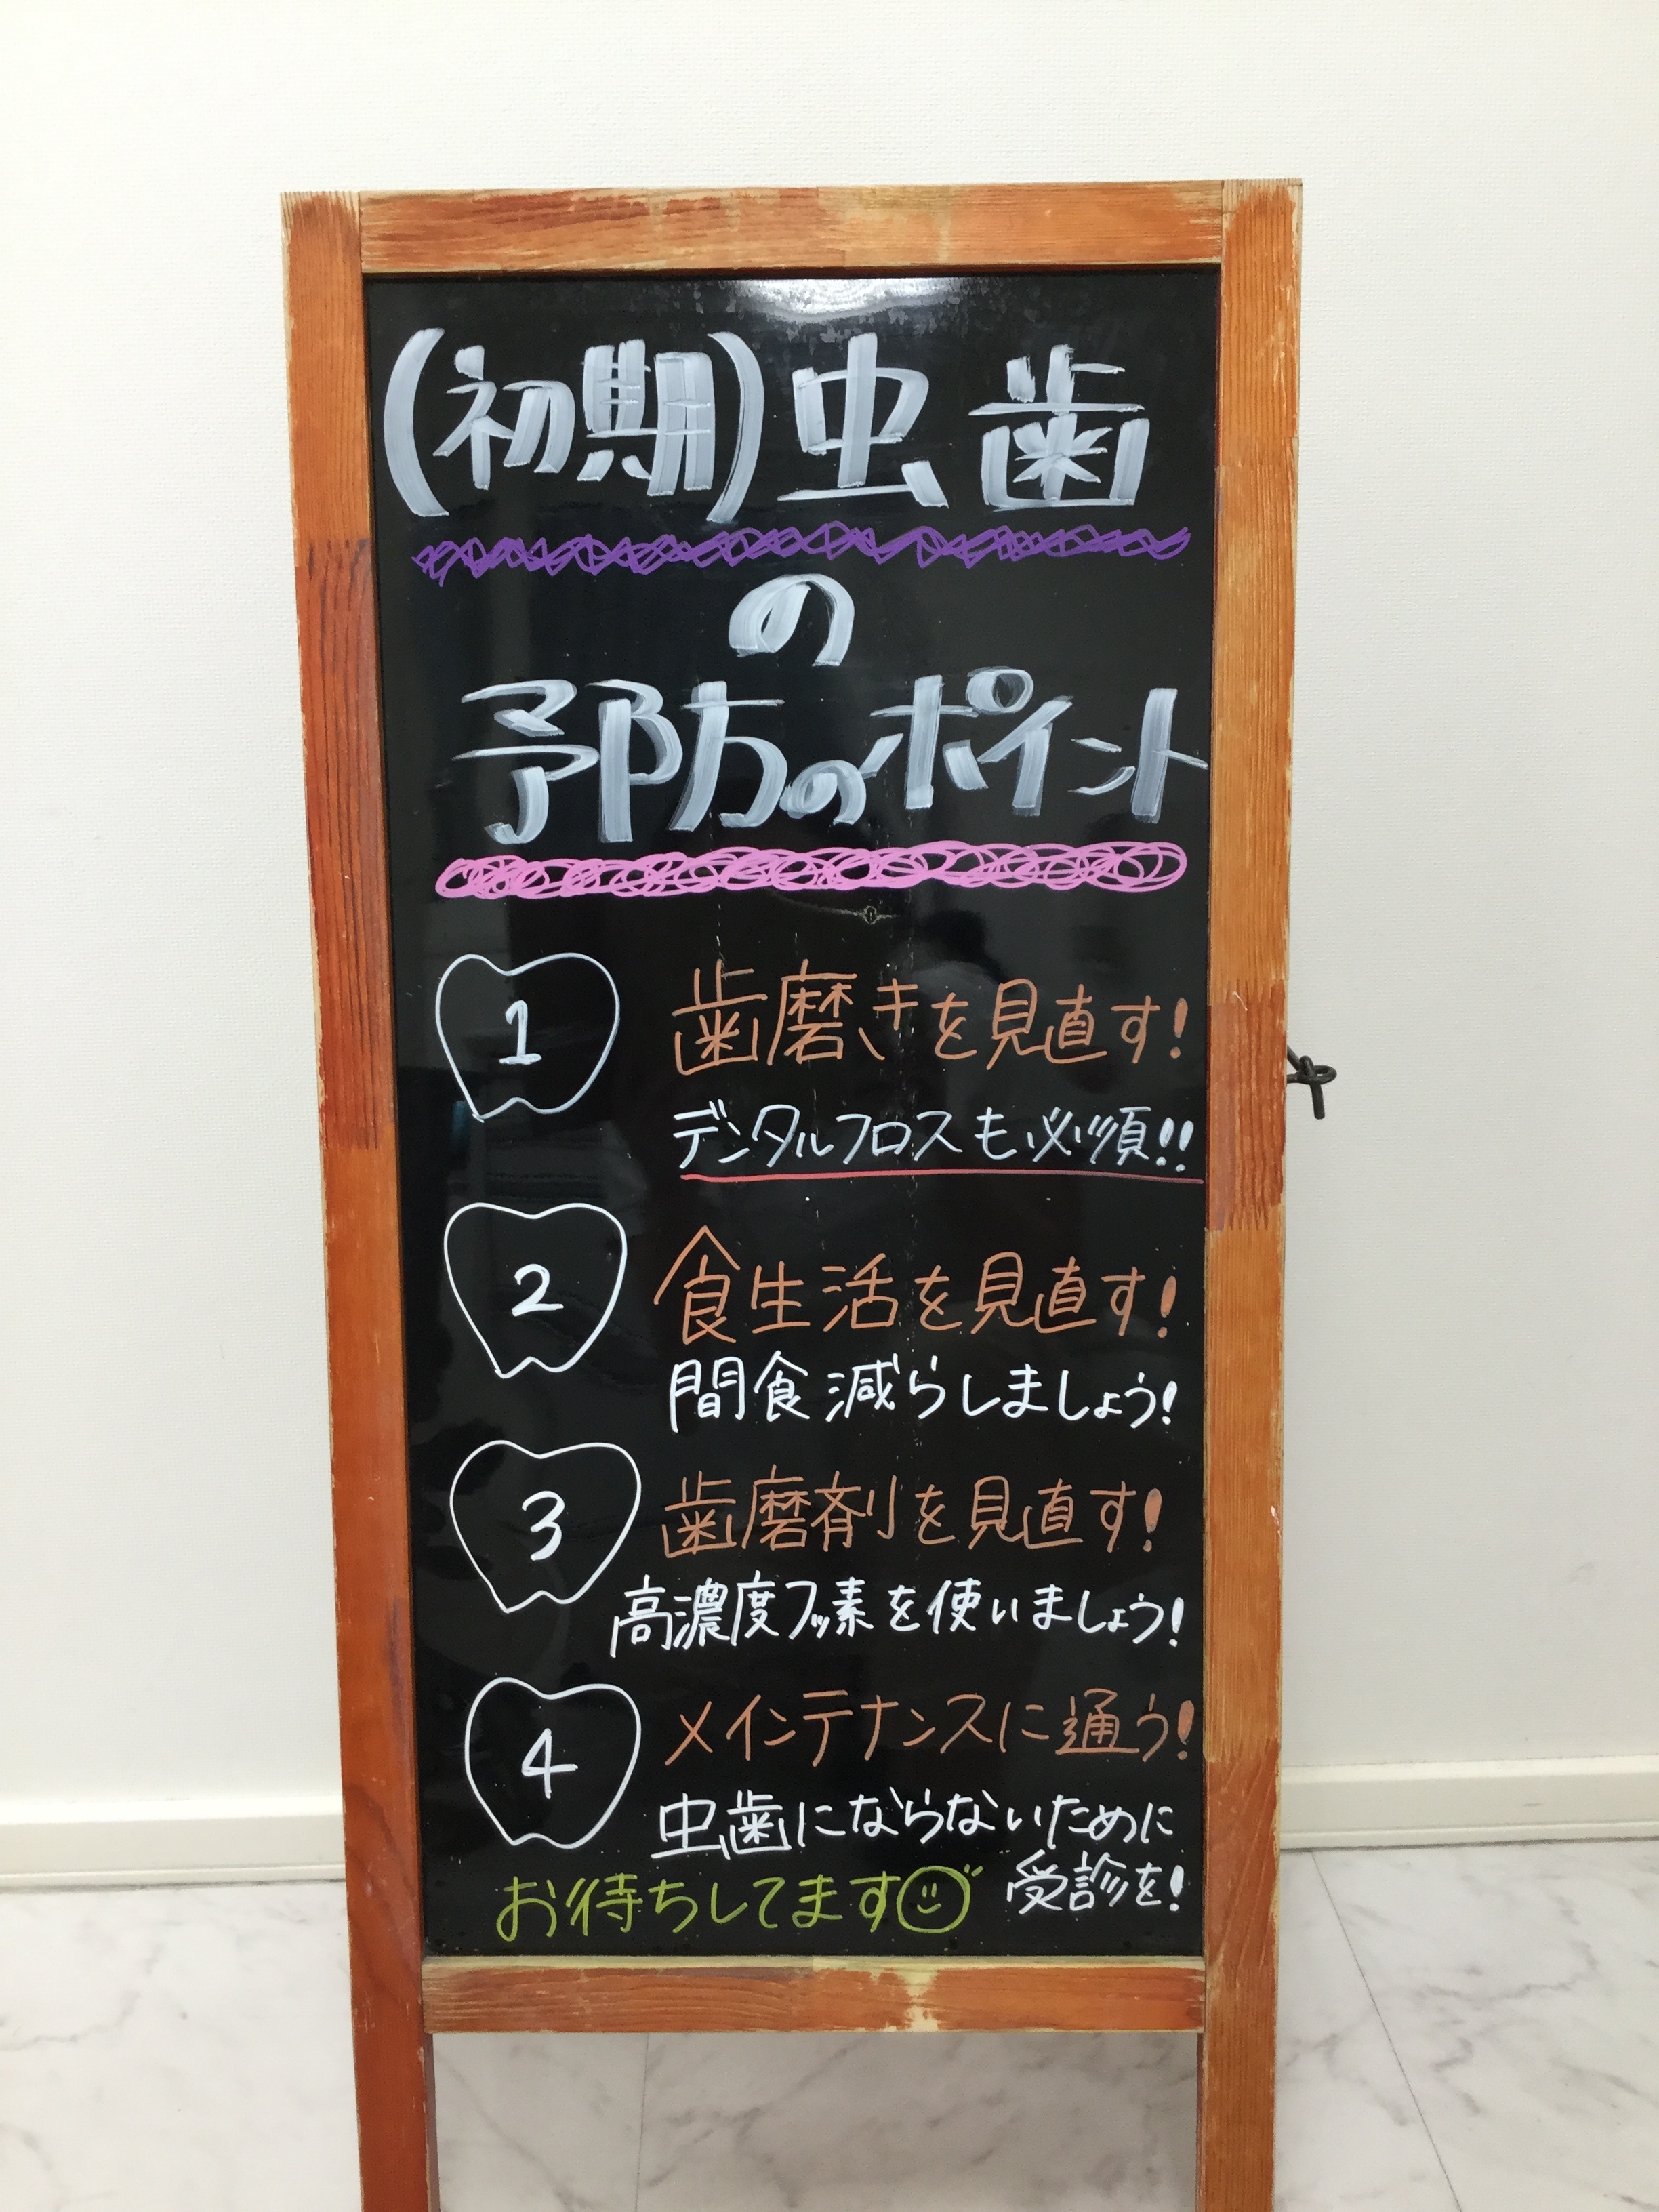 (初期)虫歯
の
予防のポイント
1 歯磨きを見直す!
デンタルフロスも必須!!
2 食生活を見直す!
間食減らしましょう!
3 歯磨剤を見直す!
高濃度フッ素を使いましょう!
4 メインテナンスに通う!
虫歯にならないために
受診を!
お待ちしてます